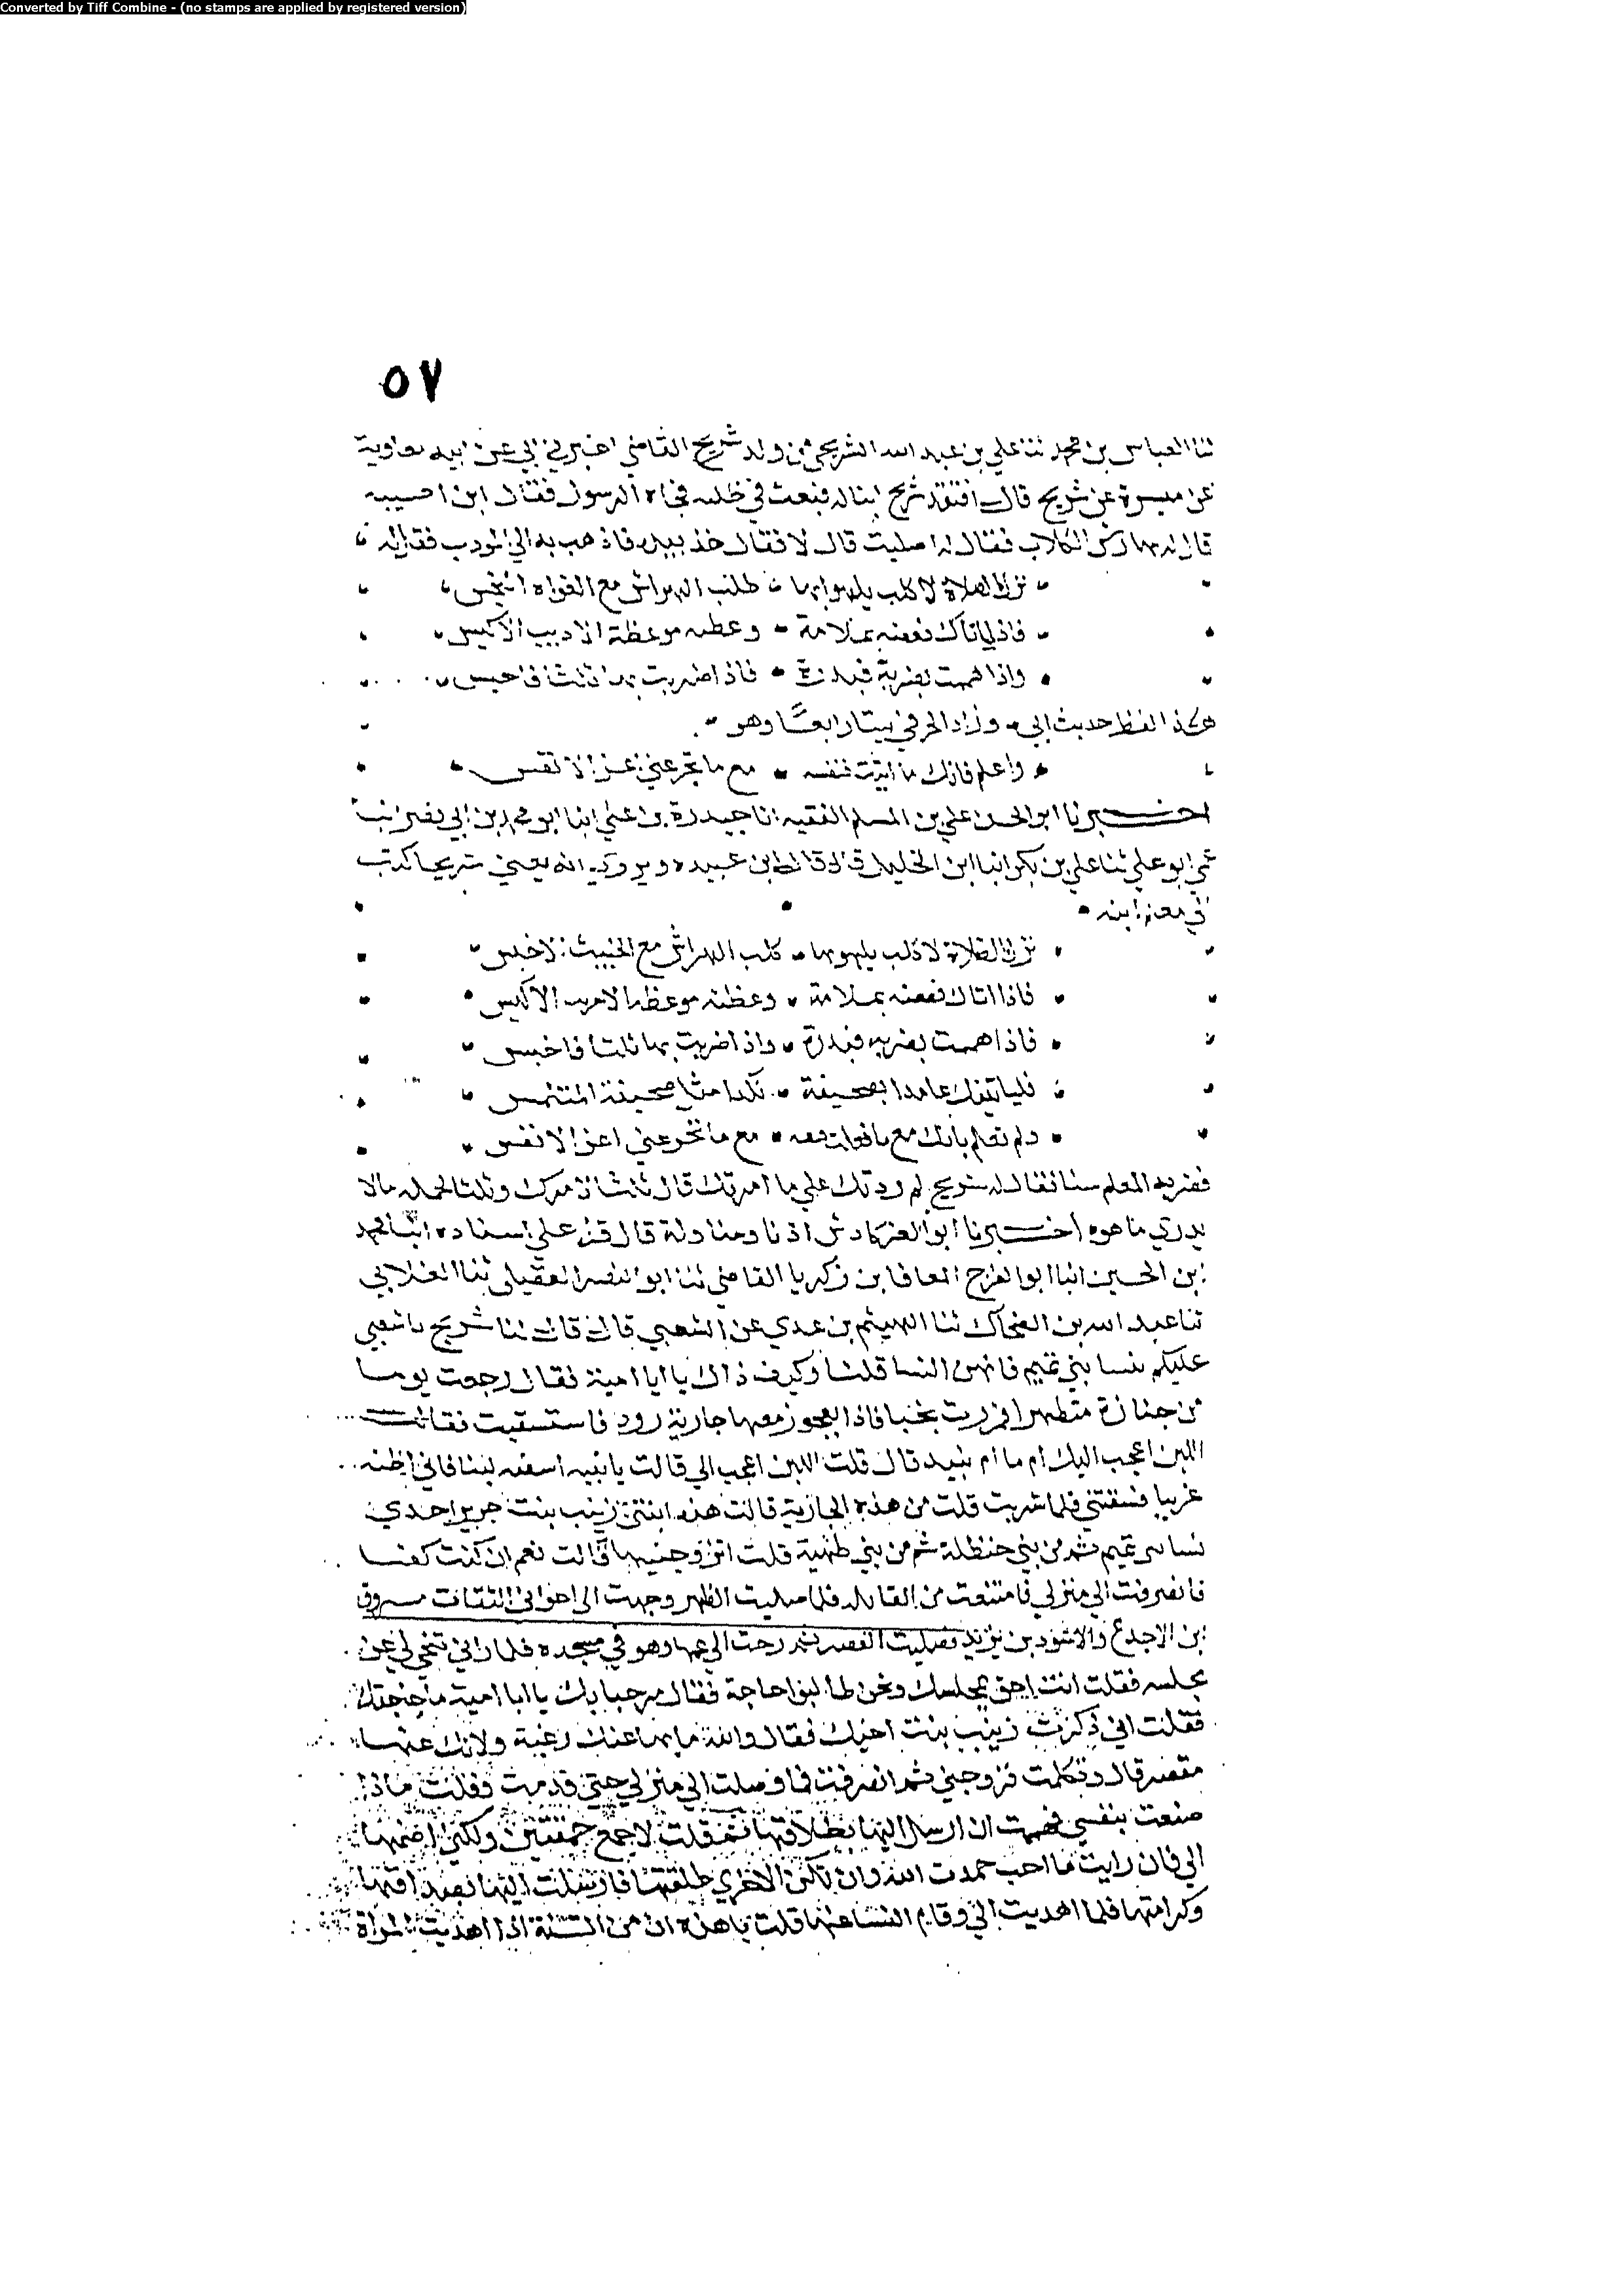 Converted by Tiff Combine - (no stamps are applied by registered version)
٥٧
ثنا العباس بن محمد ثنا علي بن عبد الله الشريحي من ولد شريح القاضي اخبرني ابي عن ابيه معاوية
عن ميسرة عن شريح قال افتقد شريح ابنا له فبعث في طلبه فجاه الرسول فقال اين اصيبه
قال له يهارش الكلاب فقال له اصليت قال لا فقال خذ بيده فاذهب به الي المودب فقال له
ترك الصلاة لا كلب يلهو بها طلب الهراش مع الغواه النجس
فاذا اتاك فعضه بملامة وعظه موعظة الاديب الاكيس
واذا هممت بضربة فبدرة فاذا ضربت بها ثلثا فاحبس
هكذا لفظ حديث ابي وزاد الحرفي بيتا رابعا وهو
واعلم فانك ما اتيت فنفسه مع ما يجرعني اعز الانفس
اخبرنا ابو الحسن علي بن المسلم الفقيه انا حيدرة بن علي انبا ابو محمد بن ابي نصر انبا
عمي ابو علي ثنا علي بن بكر انبا ابن الخليل قال قال ابن عبيده ويروي انه يعني شريحا كتب
الي معلم ابنه
ترك الصلاة لا كلب يلهو بها كلب الهراش مع الخبيث الاخبس
فاذا اتاك فعضه بملامة وعظته موعظة الاديب الاكيس
فاذا هممت بضربه فبدرة واذا ضربت بها ثلثا فاحبس
فلياتينك عامدا بصحيفة نكدا مثل صحيفة المتلمس
ولم تعلم بانك مع ما فعلت معه مع ما تجرعني اعز الانفس
فضربه المعلم ستا فقال له شريح لم زدتك علي ما امرتك قال ثلثا لامرك وثلثا لحمله مالا
يدري ما هوه اخبرنا ابو العز كادش اذنا ومناولة قال قرا علي اسناده انبا محمد
ابن الحسين انبا ابو الفرج المعافا بن زكريا القاضي ثنا ابو النضر العقيلي ثنا الغلابي
ثنا عبد الله بن الضحاك ثنا الهيثم بن عدي عن الشعبي قال قال لنا شريح يا شعبي
عليكم بنسا بني تميم فانهن النسا قلنا وكيف ذاك يا ابا امية فقال رجعت يوما
من جنازة متظهرا فمررت بخبا فاذا بعجوز معها جارية رود فاستسقيت فقالت
اللبن اعجب اليك ام ما ام نبيد قال قلت اللبن اعجب الي قالت يا بنيه اسقيه لبنا فاني اظنه
غريبا فسقتني فلما شربت قلت من هذه الجارية قالت هذه ابنتي زينب بنت جرير احدي
نسا بني تميم ثم من بني حنظلة ثم من بني طهية قلت اتزوجنيها قالت نعم ان كنت كفيا
فانصرفت الي منزلي فامتنعت من القايله فلما صليت الظهر وجهت الي اخواني الثقات مسروق
ابن الاجدع والاسود بن يزيد فصليت العصر ثم رحت الي عمها وهو في مسجده فلما راني تنحي لي عن
مجلسه فقلت انت احق بمجلسك ونحن طالبوا حاجة فقال مرحبا بك يا ابا امية ما حاجتك
فقلت اني ذكرت زينب بنت اخيك فقال والله ما بها عنك رغبة ولا بك عنها
مقصر قال وتكلمت فزوجني ثم انصرفت فما وصلت الي منزلي حتي قدمت وقلت ماذا
صنعت بنفسي فهممت ان ارسل اليها بطلاقها ثم قلت لا اجمع حمقتين ولكني اضمها
الي فان رايت ما احب حمدت الله وان تكن الاخري طلقتها فارسلت اليها بصداقها
وكرامتها فلما اهديت الي وقام النسا عنها قلت يا هذه ان من السنة اذا اهديت المراة